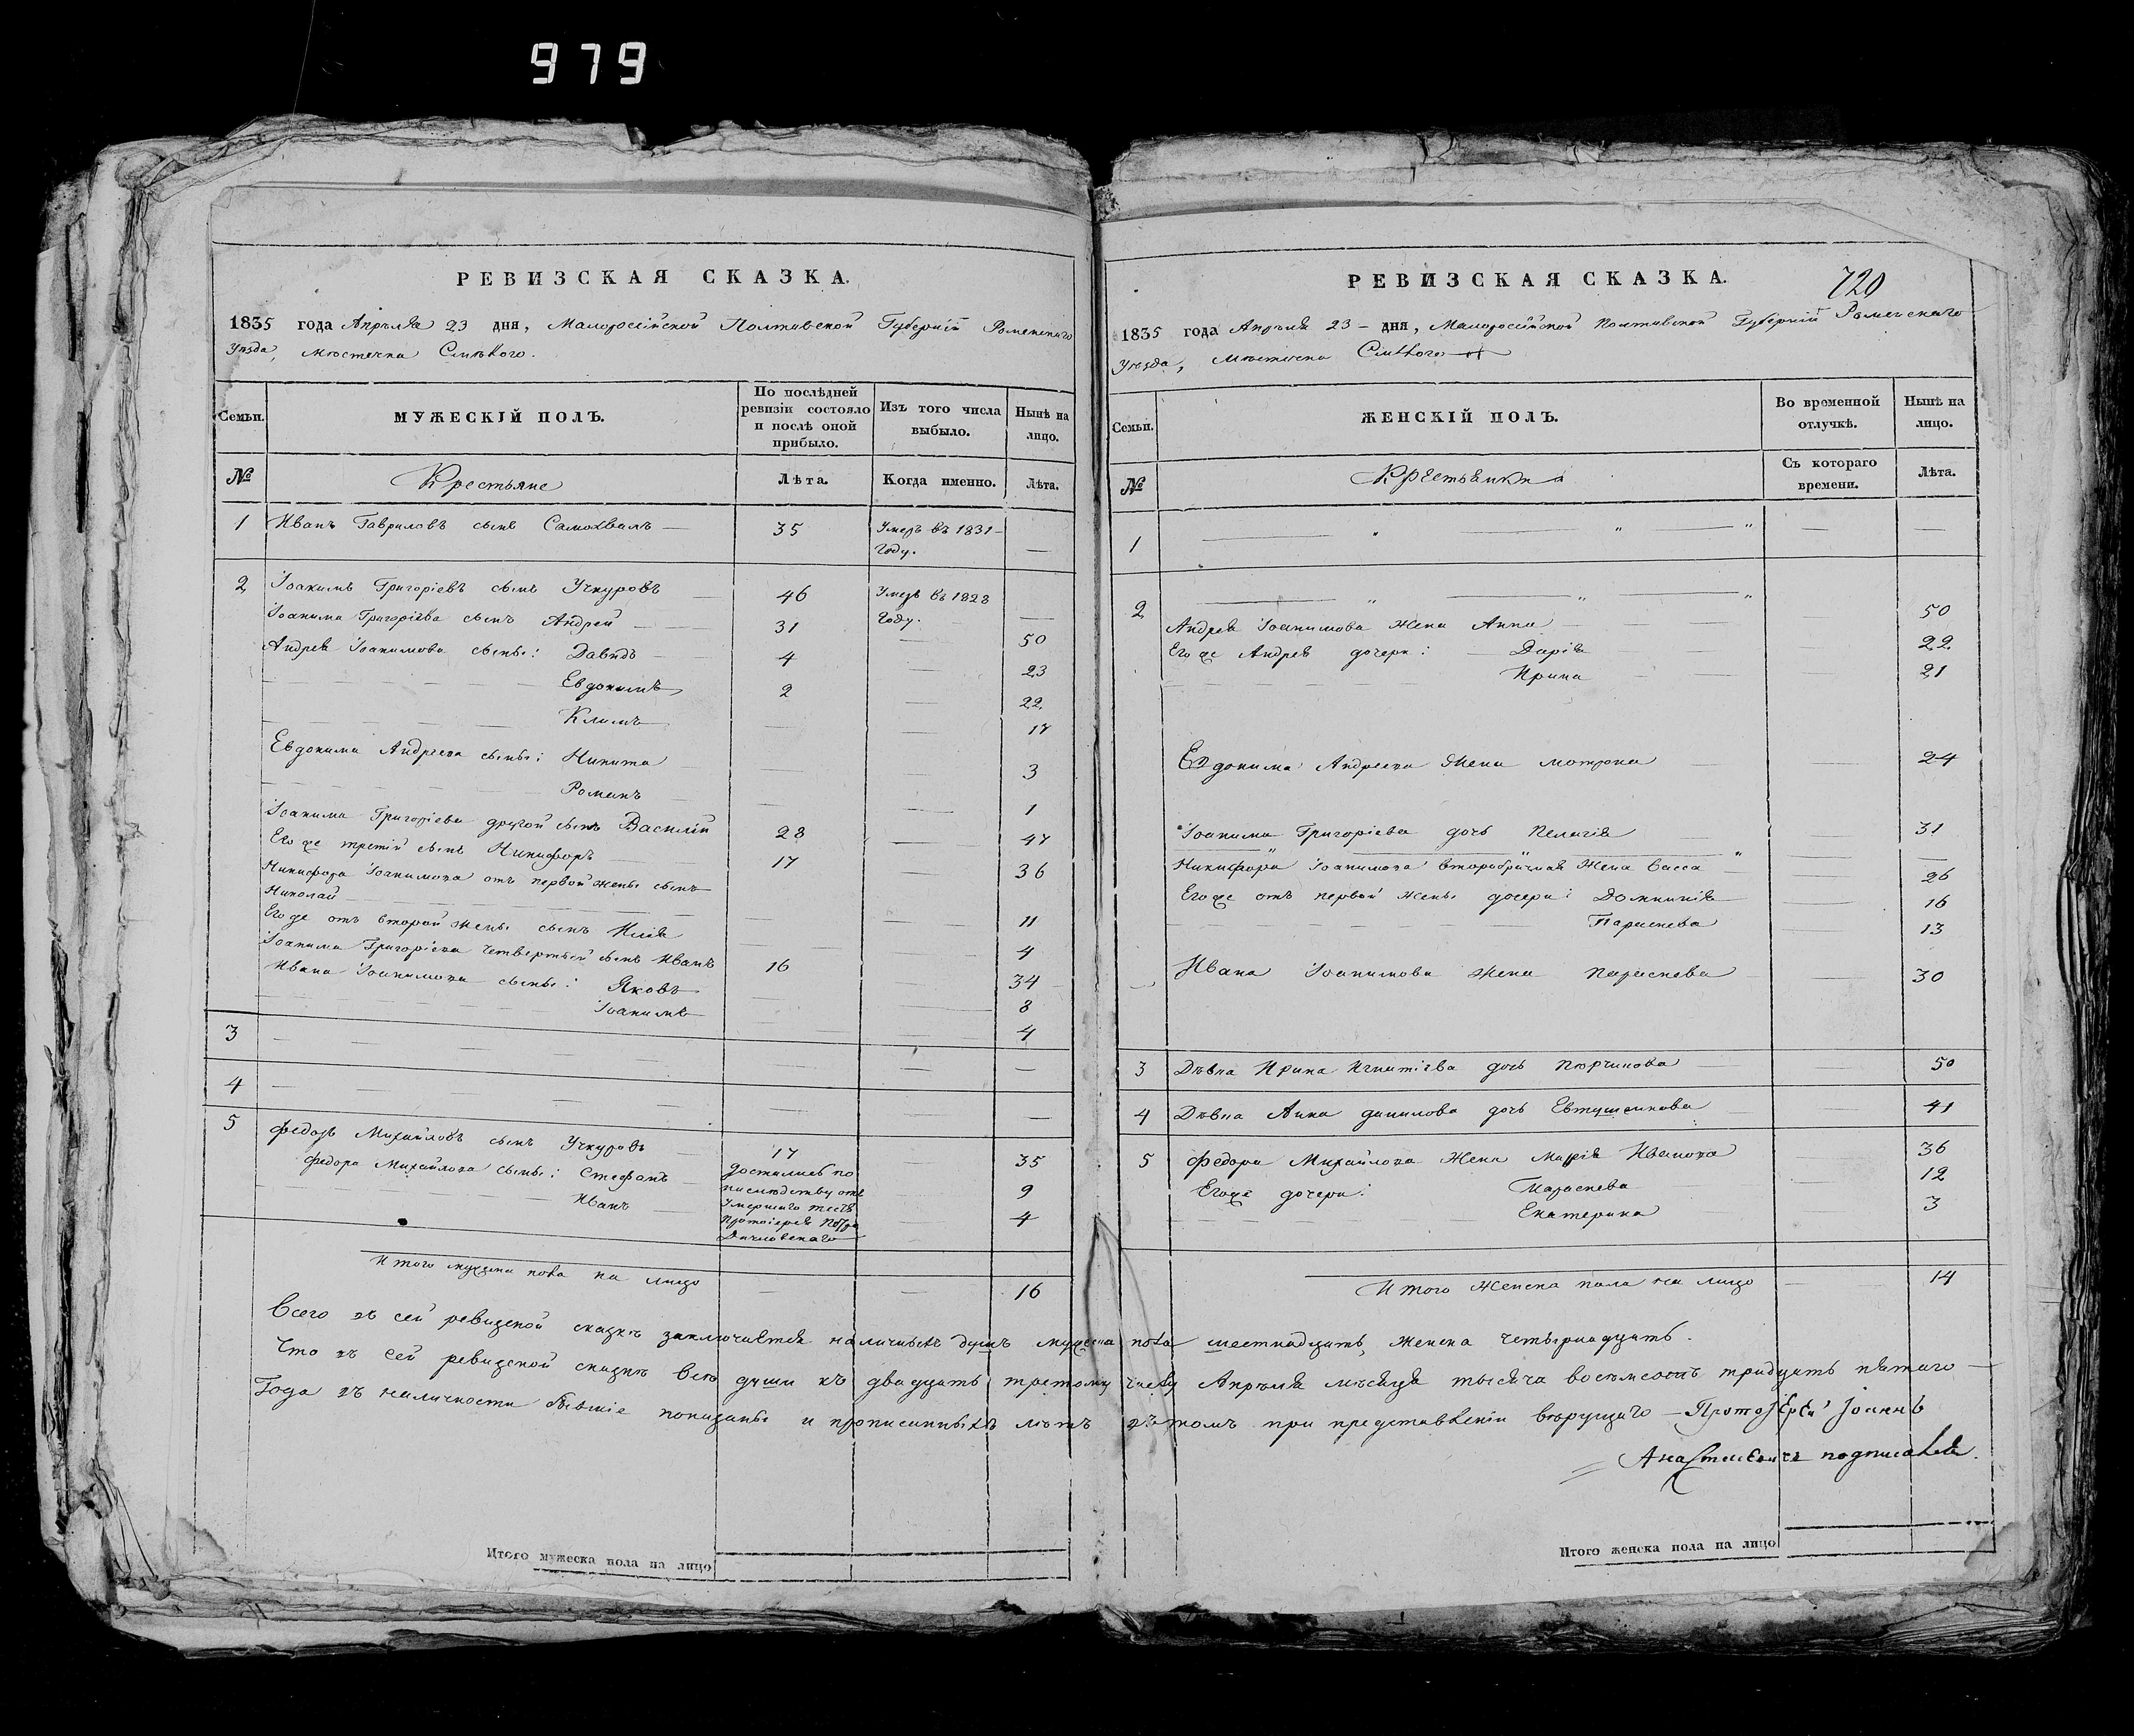 979
РЕВИЗСКАЯ СКАЗКА.
1835 года Апрѣля 23 дня, Малороссійской Полтавской Губерніи Роменскаго
Уѣзда, мѣстечка Смѣлого.
Семьи.
МУЖЕСКІЙ ПОЛЪ.
По послѣдней ревизіи состояло и послѣ оной прибыло.
Изъ того числа выбыло.
Нынѣ на лицо.
№
Крестьяне
Лѣта.
Когда именно.
Лѣта.
1 Иванъ Гавриловъ сынъ Самохвалъ — 35 Умеръ въ 1831 — году. —
2 Іоакимъ Григоріевъ сынъ Учкуровъ — 46 Умеръ въ 1828 году. —
Іоакима Григоріева сынъ Андрей — 31 — 50
Андрея Іоакимова сыны: Давидъ — 4 — 23
Евдокимъ 2 — 22
Климъ — — 17
Евдокима Андреева сыны: Никита — — 3
Романъ — — 1
Іоакима Григоріева другой сынъ Василій 28 — 47
Его же третій сынъ Никифоръ — 17 — 36
Никифора Іоакимова отъ первой жены сынъ
Николай — — 11
Его же отъ второй жены сынъ Илія — — 4
Іоакима Григоріева четвертый сынъ Иванъ 16 — 34
Ивана Іоакимова сыны: Яковъ — — 8
Іоакимъ — — 4
3 — — — —
4 — — — —
5 Федоръ Михайловъ сынъ Учкуровъ 17 — 35
Федора Михайлова сыны: Стефанъ — 9
Иванъ — 4
достались по
наслѣдству отъ
умершаго тестя
Протоіерея Петра
Итого мужеска пола на лицо — — 16
РЕВИЗСКАЯ СКАЗКА.
720
1835 года Апрѣля 23 — дня, Малороссійской Полтавской Губерніи Роменскаго
Уѣзда, мѣстечка Смѣлого
Семьи.
ЖЕНСКІЙ ПОЛЪ.
Во временной отлучкѣ.
Нынѣ на лицо.
№
Крестьянки
Съ котораго времени.
Лѣта.
1 — " — " — —
2 — " — " — "
Андрея Іоакимова жена Анна — — 50
Его же Андрея дочери: — Дарія — 22
Ирина — 21
Евдокима Андреева жена Мотрона — — 24
Іоакима Григоріева дочь Пелагія — — 31
— " — " — "
Никифора Іоакимова второбрачная жена Васса — 26
Его же отъ первой жены дочери: Домникія — 16
Параскева — 13
Ивана Іоакимова жена Параскева — 30
3 Дѣвка Ирина Игнатіева дочь — 50
4 Дѣвка Анна Данилова дочь Евтушенкова — 41
5 Федора Михайлова жена Марія Иванова — 36
Его же дочери: Параскева — 12
Екатерина — 3
Итого женска пола на лицо — 14
Всего въ сей ревизской сказкѣ заключается наличныхъ душъ мужеска пола шестнадцать, женска четырнадцать.
Что въ сей ревизской сказкѣ всѣ души къ двадцать третьему числу Апрѣля мѣсяца тысяча восемсотъ тридцать пятаго —
Года въ наличности бывшіе показаны и прописанныхъ лѣтъ въ томъ при представленіи вѣрующаго — Протоіерей Іоаннъ
подписался.
Итого мужеска пола на лицо
Итого женска пола на лицо